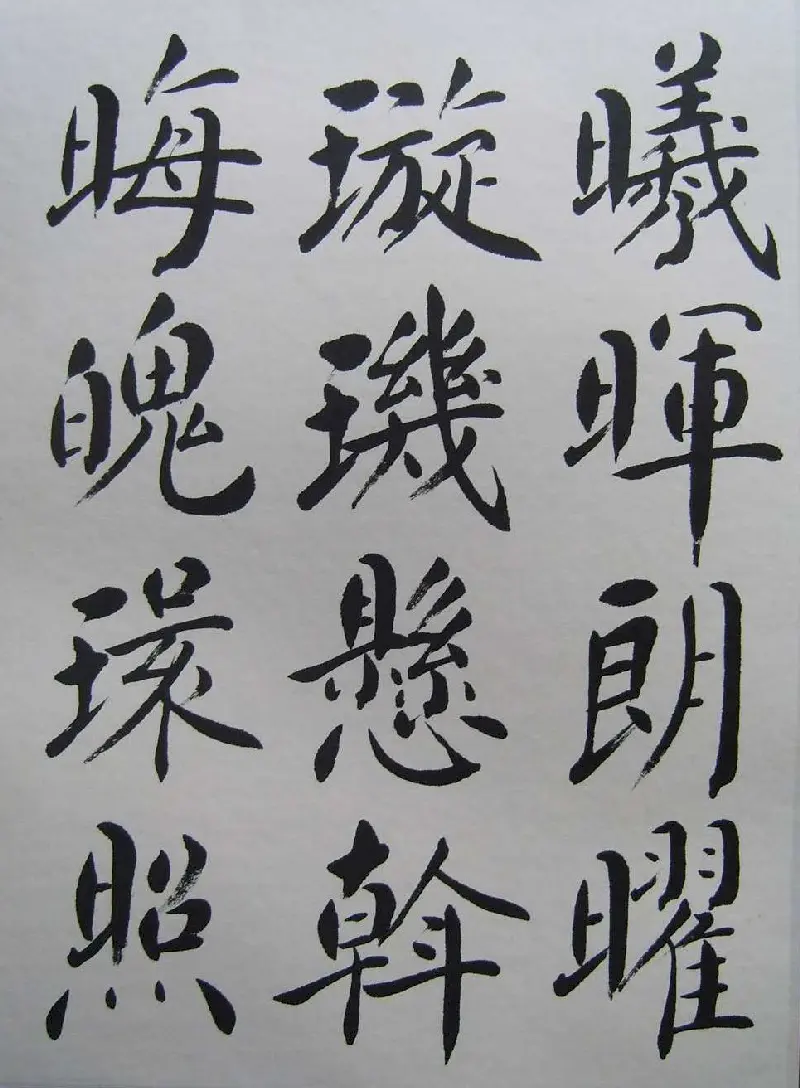 曦暉朗曜
璇璣懸斡
晦魄環照